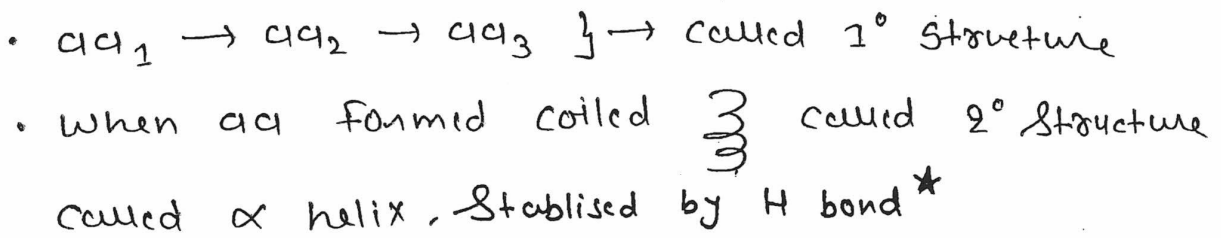 • aa₁ → aa₂ → aa₃ } → called 1° structure
• when aa formed coiled called 2° structure
called α helix, Stablised by H bond*